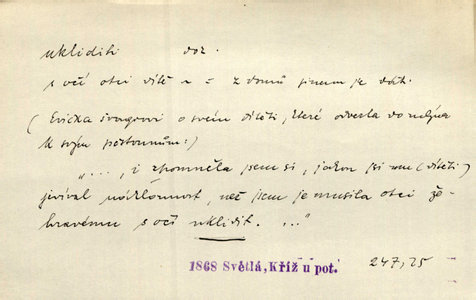 ukliditi dok.
s očí otci dítě a = z domů jinam je dáti.
(Evička švagrovi o svém dítěti, které odvezla do mlýna
k svým pěstounům:)
"..., i zpomněla jsem si, jakou jsi mu (dítěti)
jevíval náklonnost, než jsem je musila otci že-
bravému s očí uklidit. ..."
1868 Světlá, Kříž u pot. 247, 25